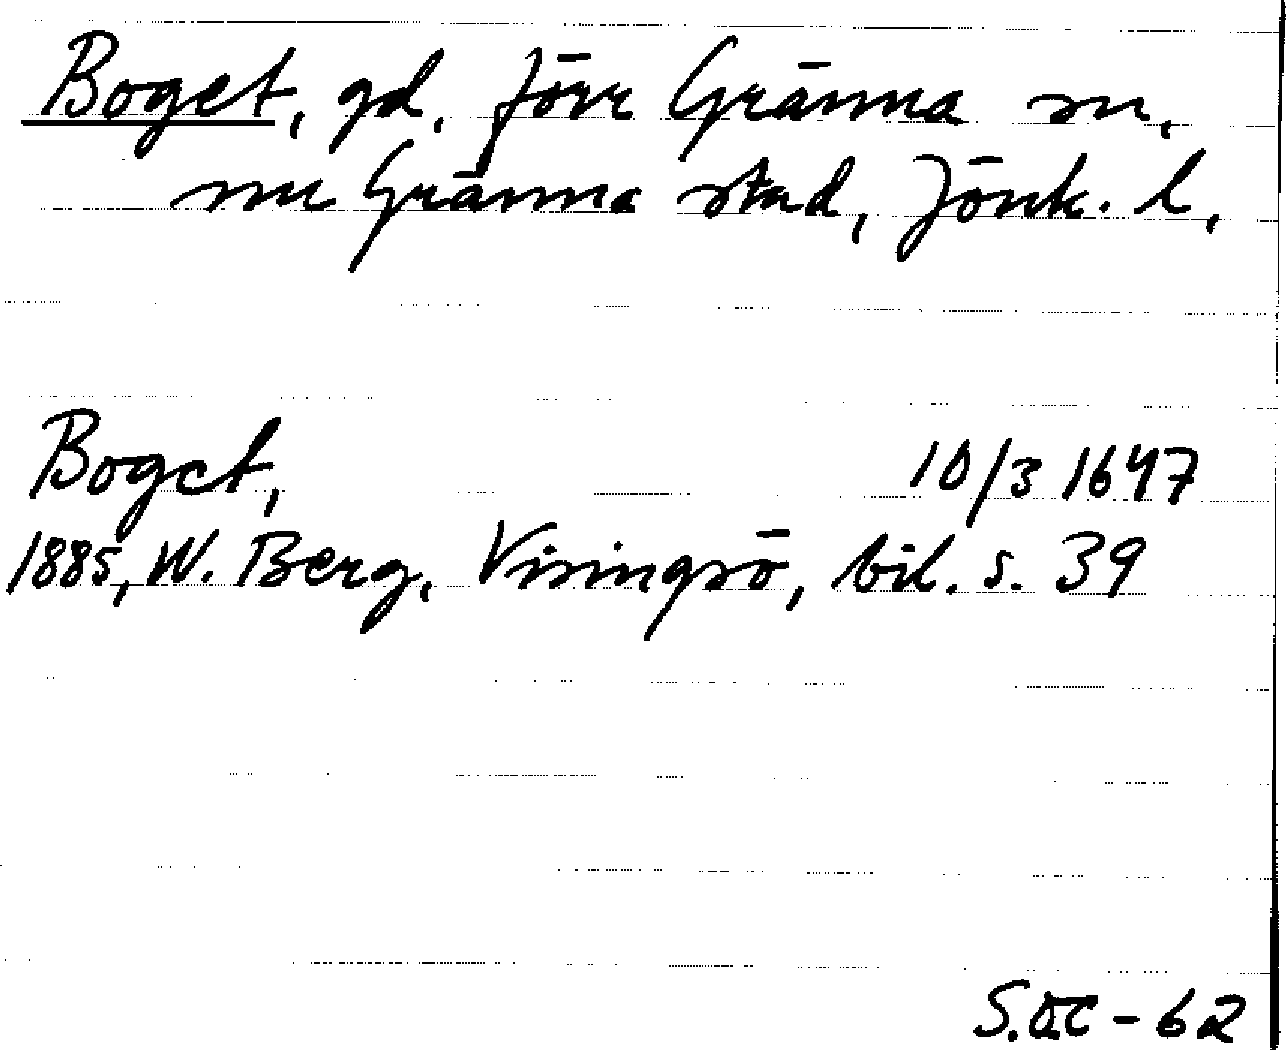 Boget, gd. förr Gränna sn,
nu Gränna stad, Jönk. l.
Boget, 10/3 1647
1885, W. Berg, Visingsö, bil. s. 39
-62